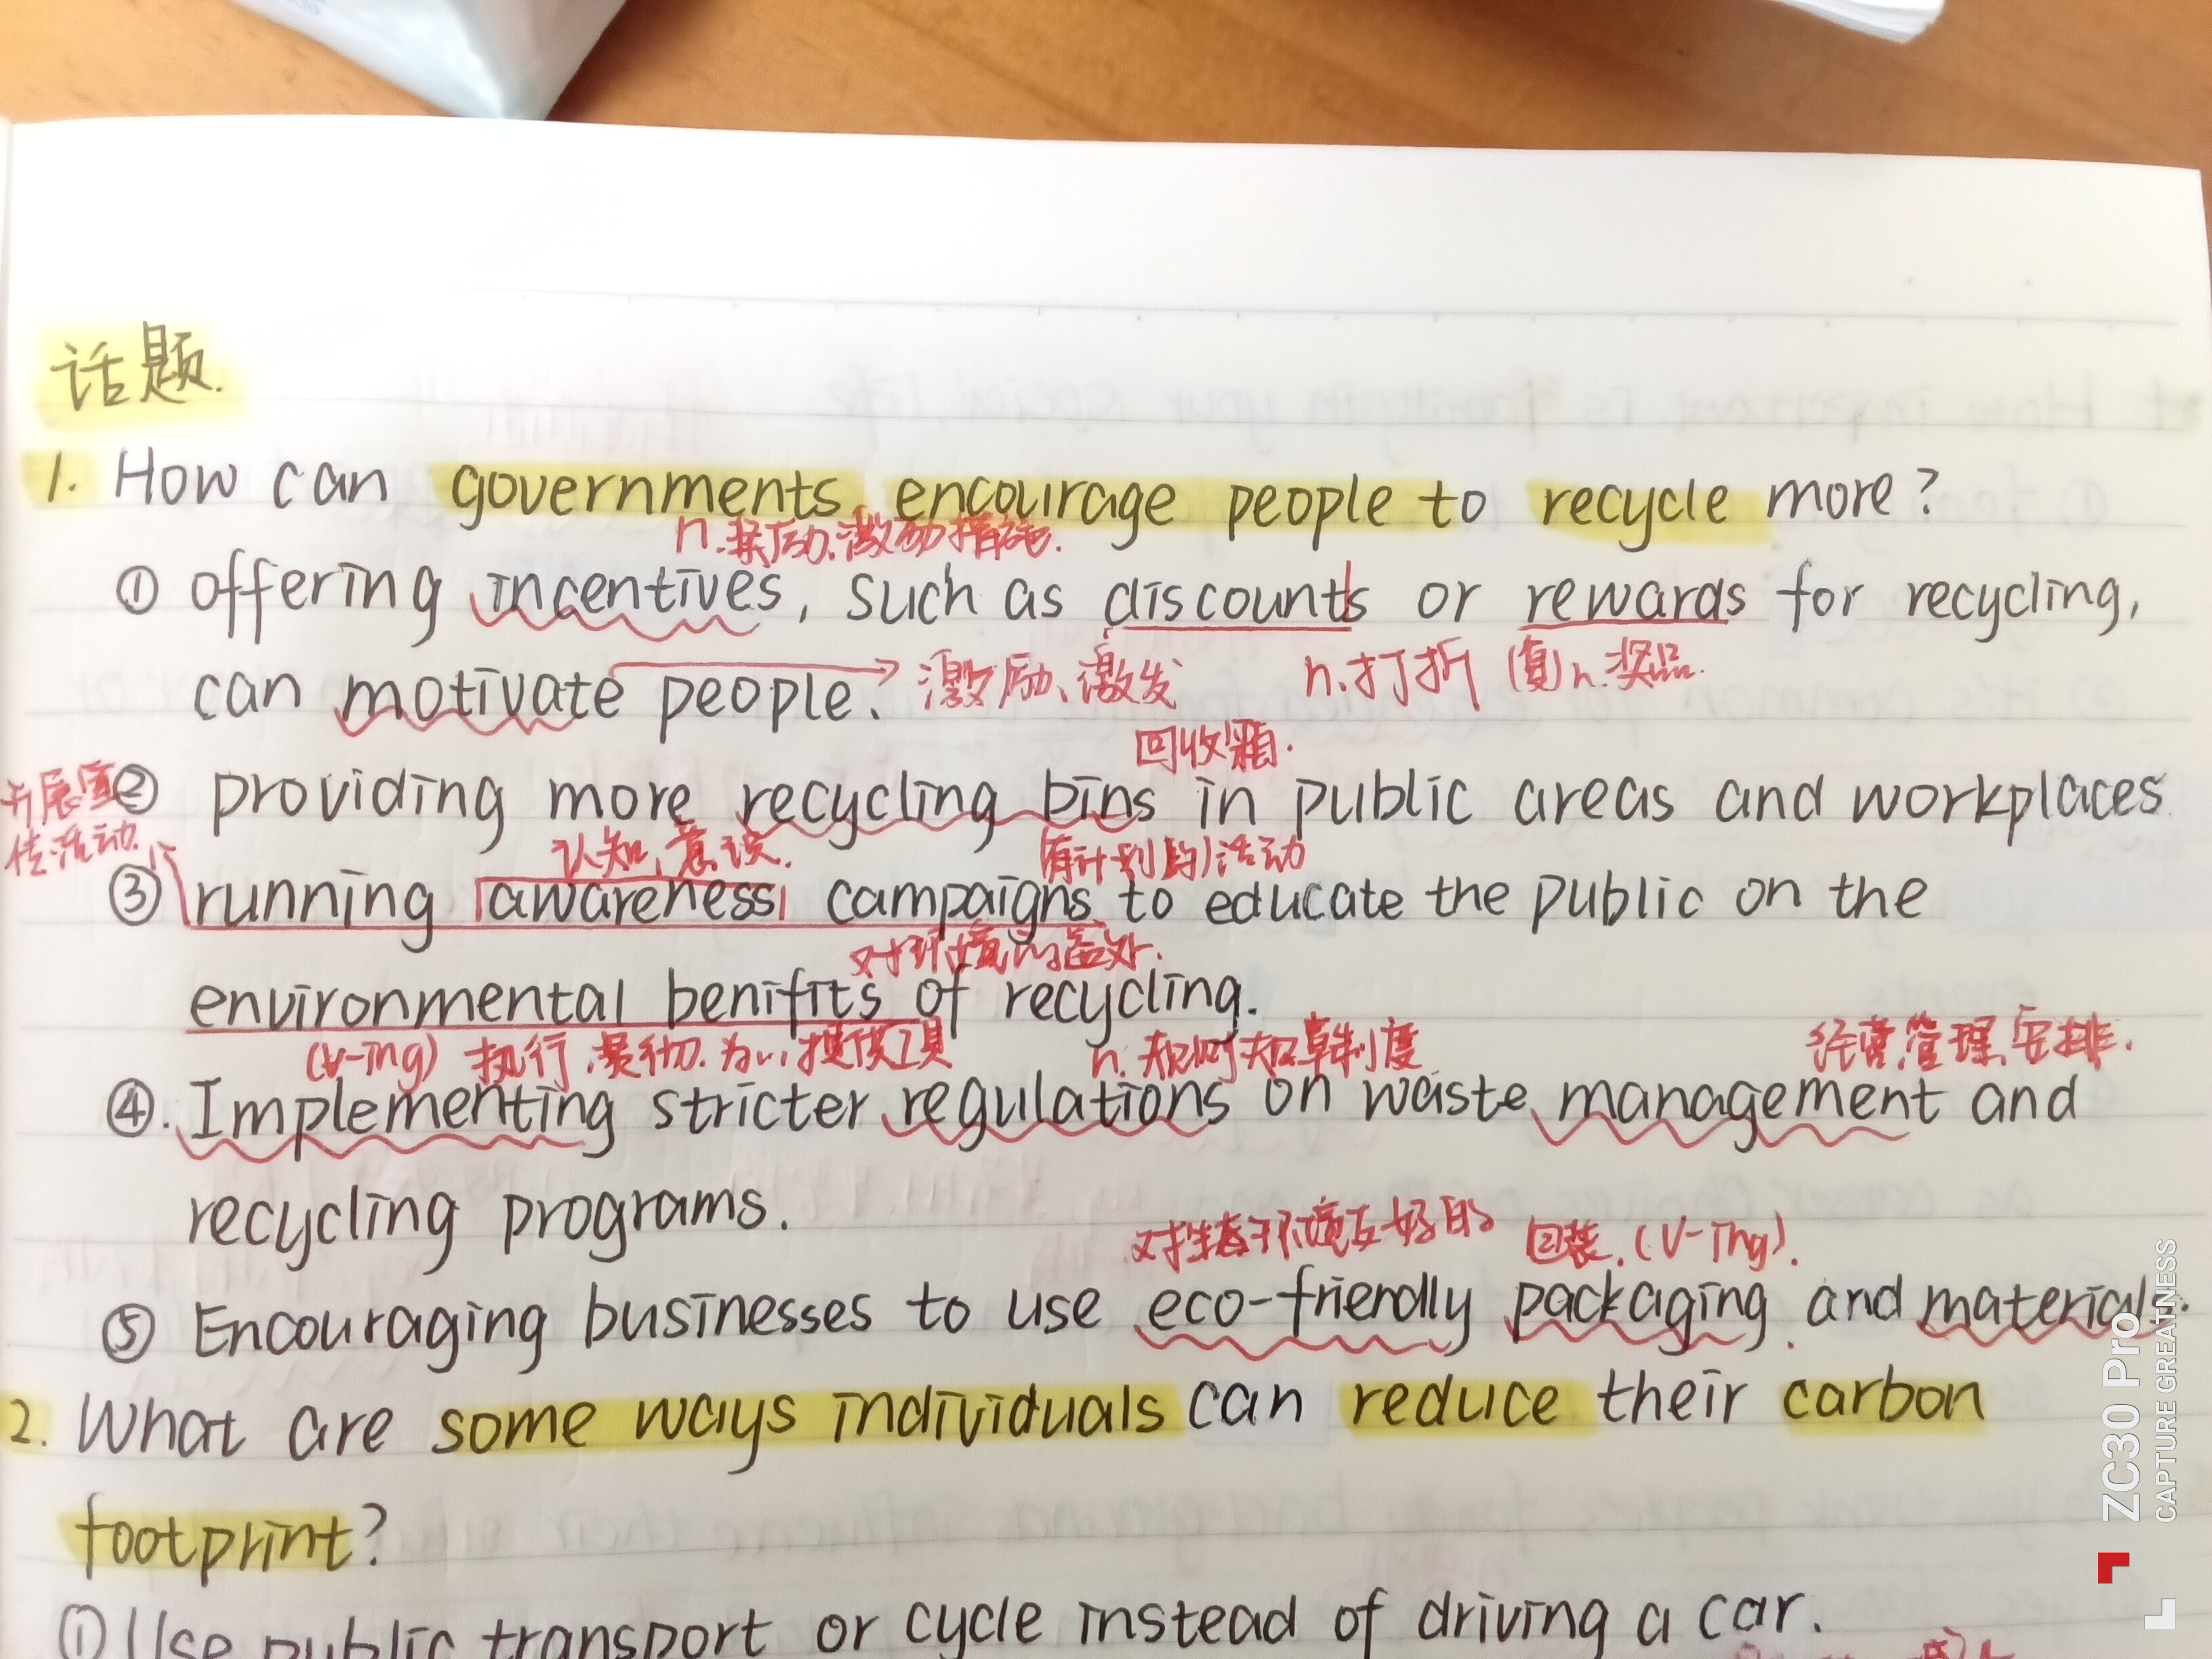 话题.
1. How can governments encourage people to recycle more?
n.奖励.激励措施.
① offering incentives, such as discounts or rewards for recycling,
can motivate people. 激励、激发 n.打折 (复)n.奖品.
回收箱.
② providing more recycling bins in public areas and workplaces
开展宣
传活动.
认知,意识. (有计划的)活动
③ running awareness campaigns to educate the public on the
对环境的益处.
environmental benifits of recycling.
(v-ing) 执行,贯彻. 为...提供工具 n.规则,规章制度 经营,管理,安排.
④. Implementing stricter regulations on waste management and
recycling programs.
对生态环境友好的 (v-ing).
⑤ Encouraging businesses to use eco-friendly packaging and materials.
2. What are some ways individuals can reduce their carbon
footprint?
① Use public transport or cycle instead of driving a car.
ZC30 Pro
CAPTURE GREATNESS